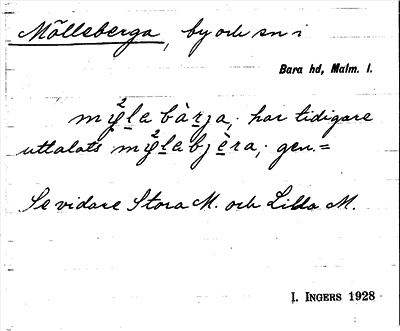 Mölleberga, by och sn i
Bara hd, Malm. l.
mø̀²la bàrja; har tidigare
uttalats mø̀²labjèra; gen.=
Se vidare Stora M. och Lilla M.
I. INGERS 1928